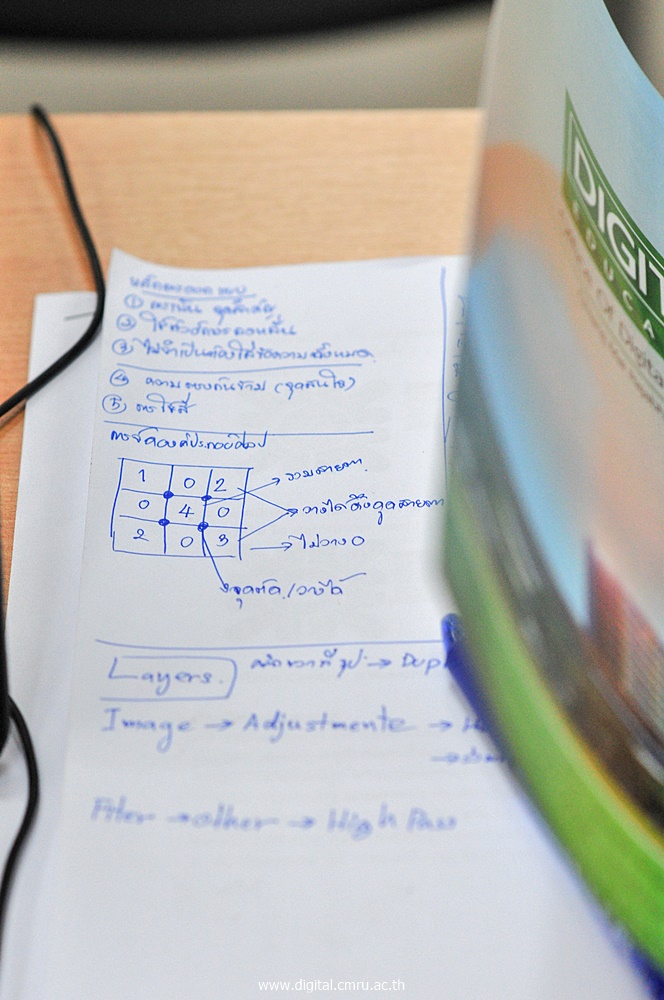 หลักการออกแบบ
① การเน้น จุดสำคัญ
② ใช้ตัวอักษร
③ ไม่จำเป็นต้องใส่ข้อความทั้งหมด
④ ความตรงกันข้าม (จุดสนใจ)
⑤ การใช้สี
การจัดองค์ประกอบศิลป์
1 0 2
0 4 0
2 0 3
รวมสายตา
วางได้ดึงดูดสายตา
ไม่วาง 0
จุดตัด/วางได้
Layers.
Image → Adjustmente →
Filter → other → High Pass
DIGIT
EDUCA
of Digita
www.digital.cmru.ac.th